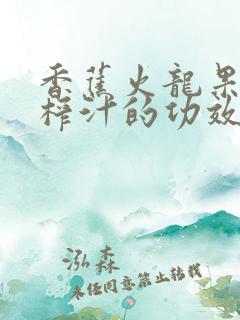 香蕉火龍果
榨汁的功效
泓森
未经同意禁止转载